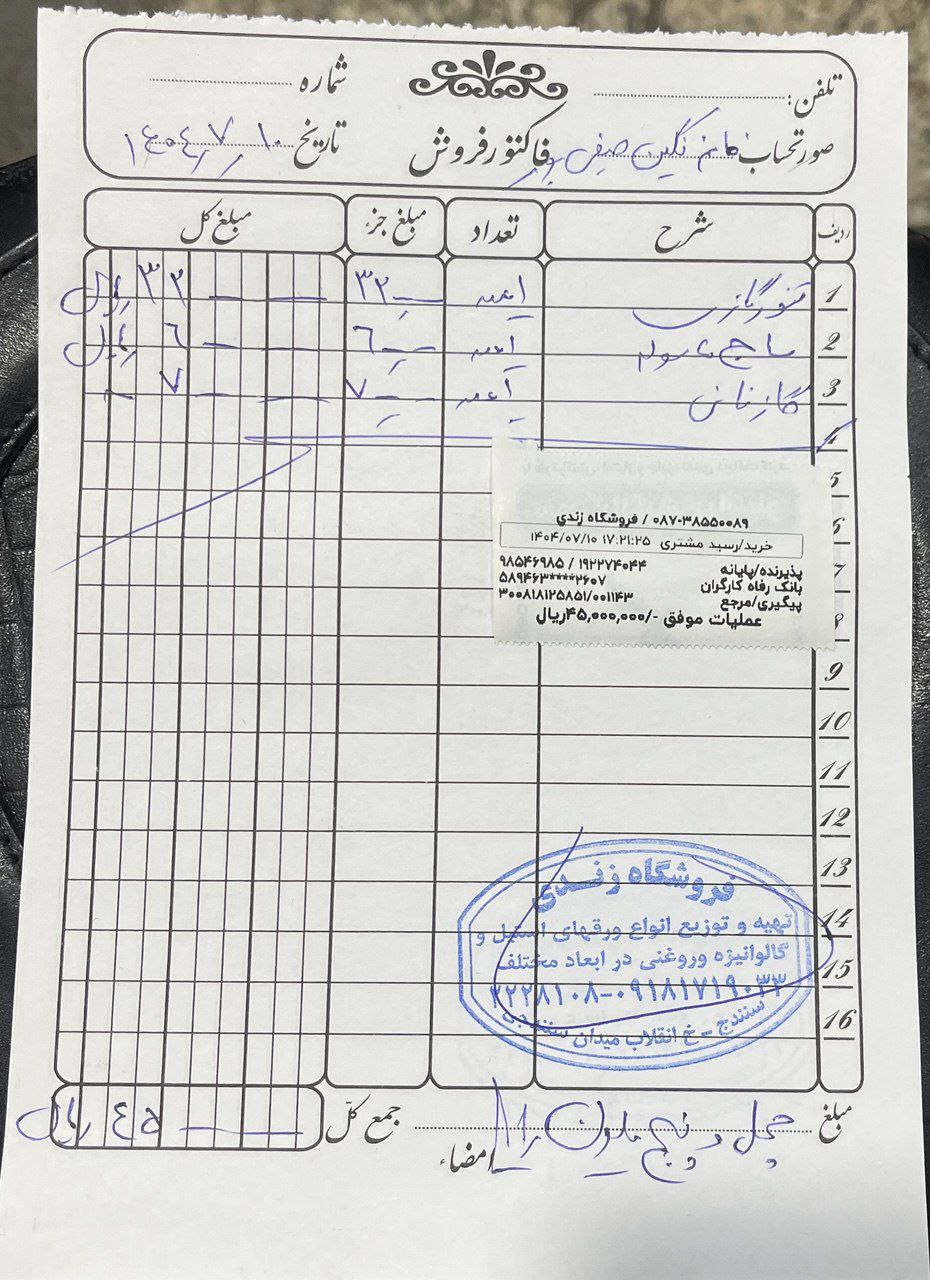 تلفن: شماره
صورتحساب خانم نگین صیفی پور فاکتور فروش تاریخ ۱۴۰۴/۷/۱۰
ردیف شرح تعداد مبلغ جز مبلغ کل
1 تنور گازی ۱ عدد ۳۲ـــ ۳۲ــــ ریال
2 ساج ۱ عدد ۶ــ ۶ــــ ریال
3 گاز نانی ۱ عدد ۷ــ ۷ــــ
4
5
6
7
8
9
10
11
12
13
14
15
16
۰۸۷-۳۸۵۵۰۰۸۹ / فروشگاه زندي
خرید/رسید مشتری ۱۴۰۴/۰۷/۱۰ ۱۷:۲۱:۲۵
پذیرنده/پایانه ۱۹۲۲۷۴۰۴۴ / ۹۸۵۴۶۹۸۵
بانک رفاه کارگران ۵۸۹۴۶۳****۲۶۰۷
پیگیری/مرجع ۳۰۰۸۱۸۱۲۵۸۵۱/۰۰۱۱۴۳
عملیات موفق -/۴۵,۰۰۰,۰۰۰ریال
فروشگاه زندی
تهیه و توزیع انواع ورقهای استیل و
گالوانیزه وروغنی در ابعاد مختلف
۳۲۲۸۱۰۸-۰۹۱۸۱۷۱۹۰۳۳
سنندج - خ انقلاب میدان
مبلغ چهل و پنج ملیون ریال جمع کل ۴۵ــــ ریال
امضاء